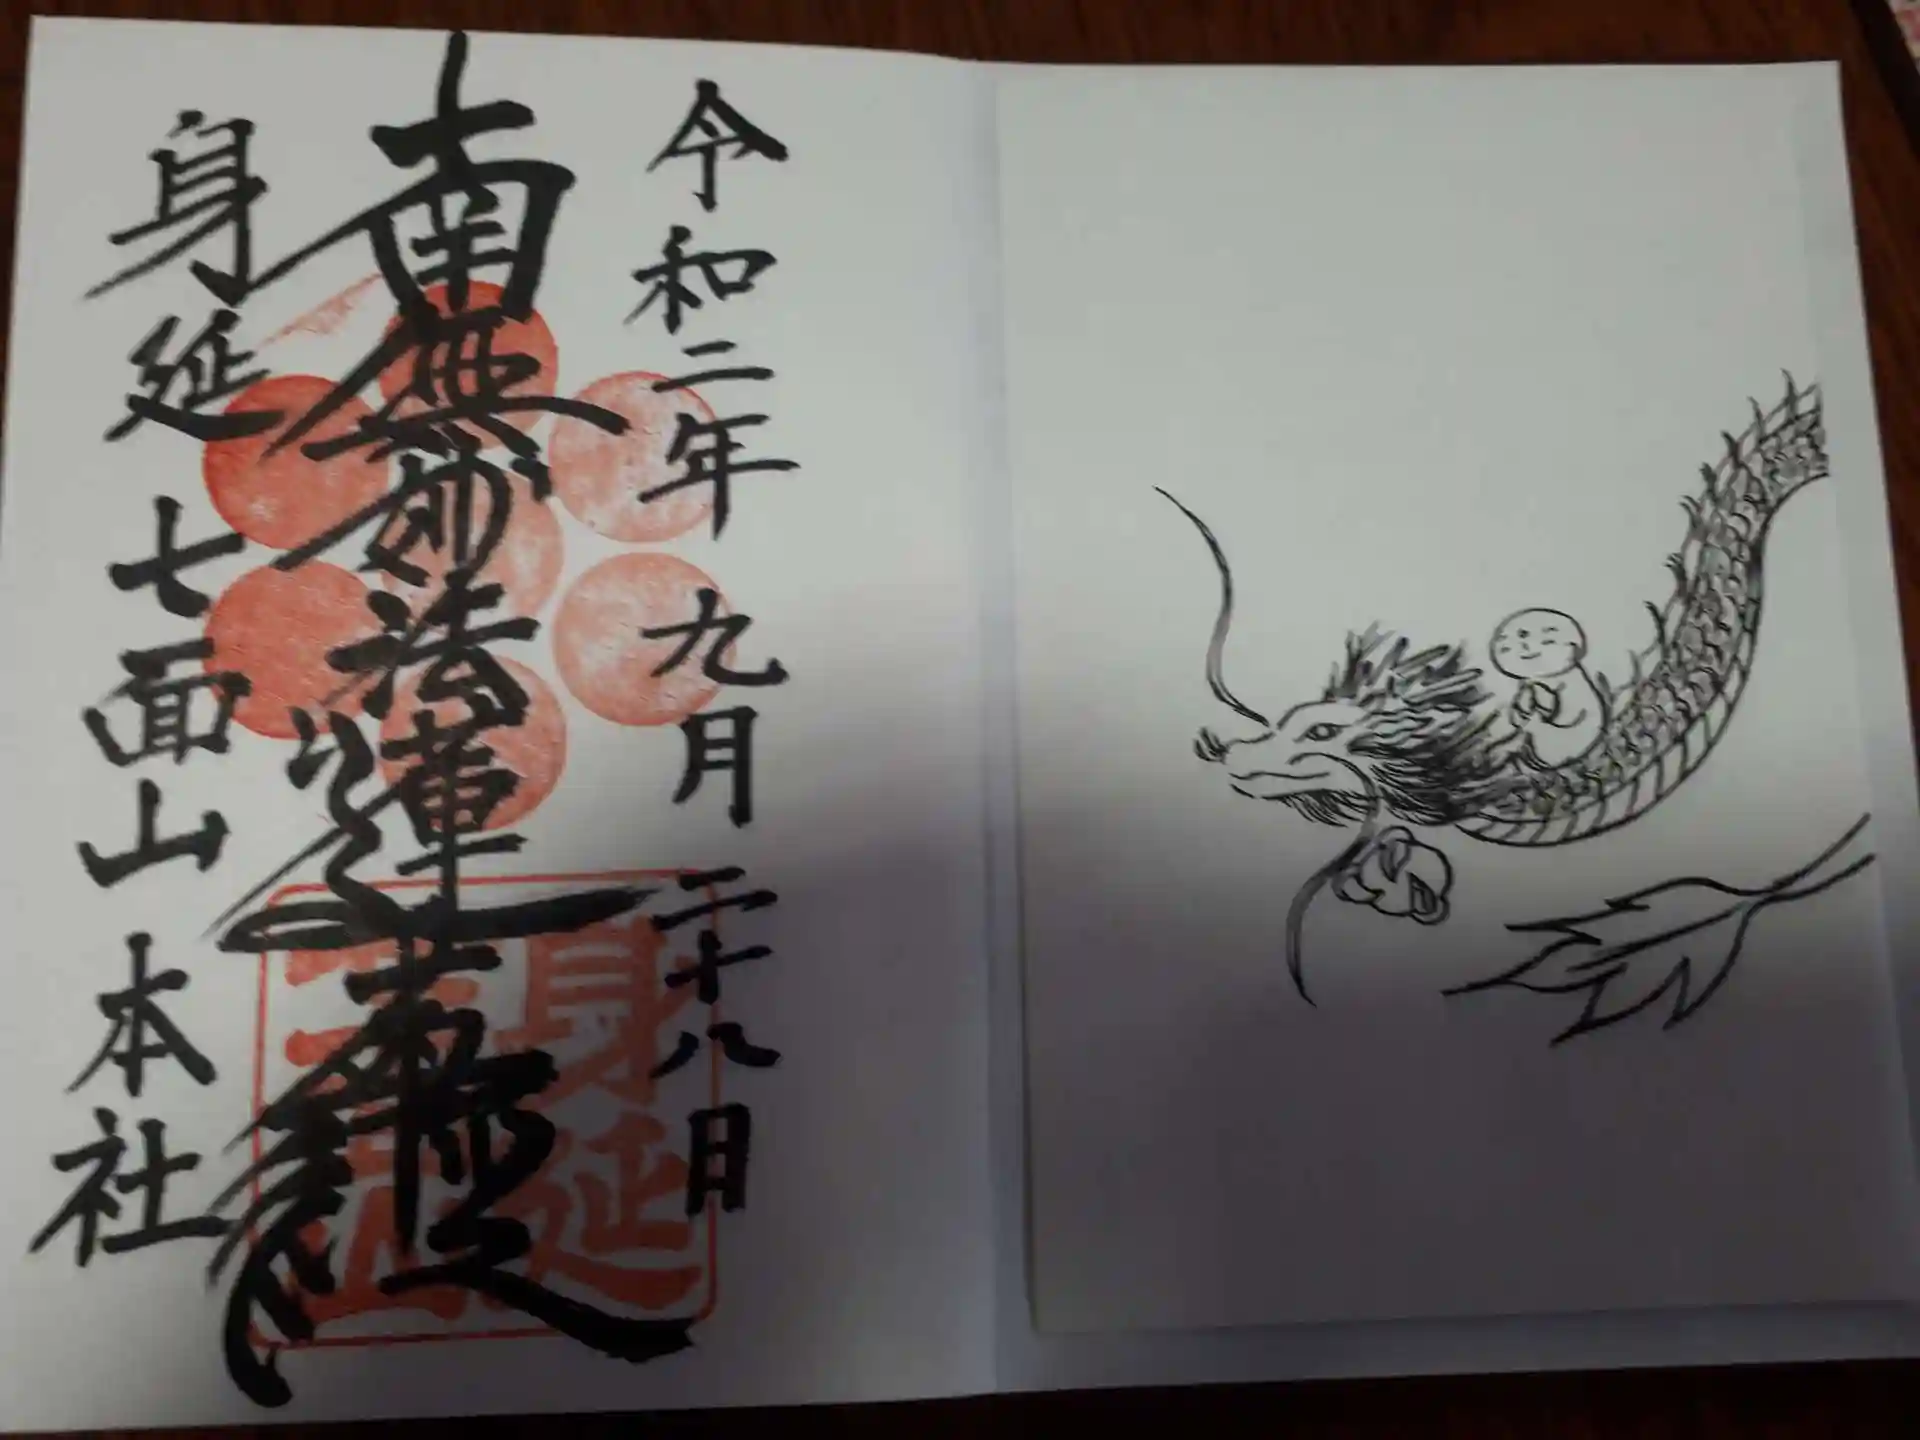 令和二年 九月 二十八日
南無妙法蓮華経
身延 七面山 本社
身延
七面山